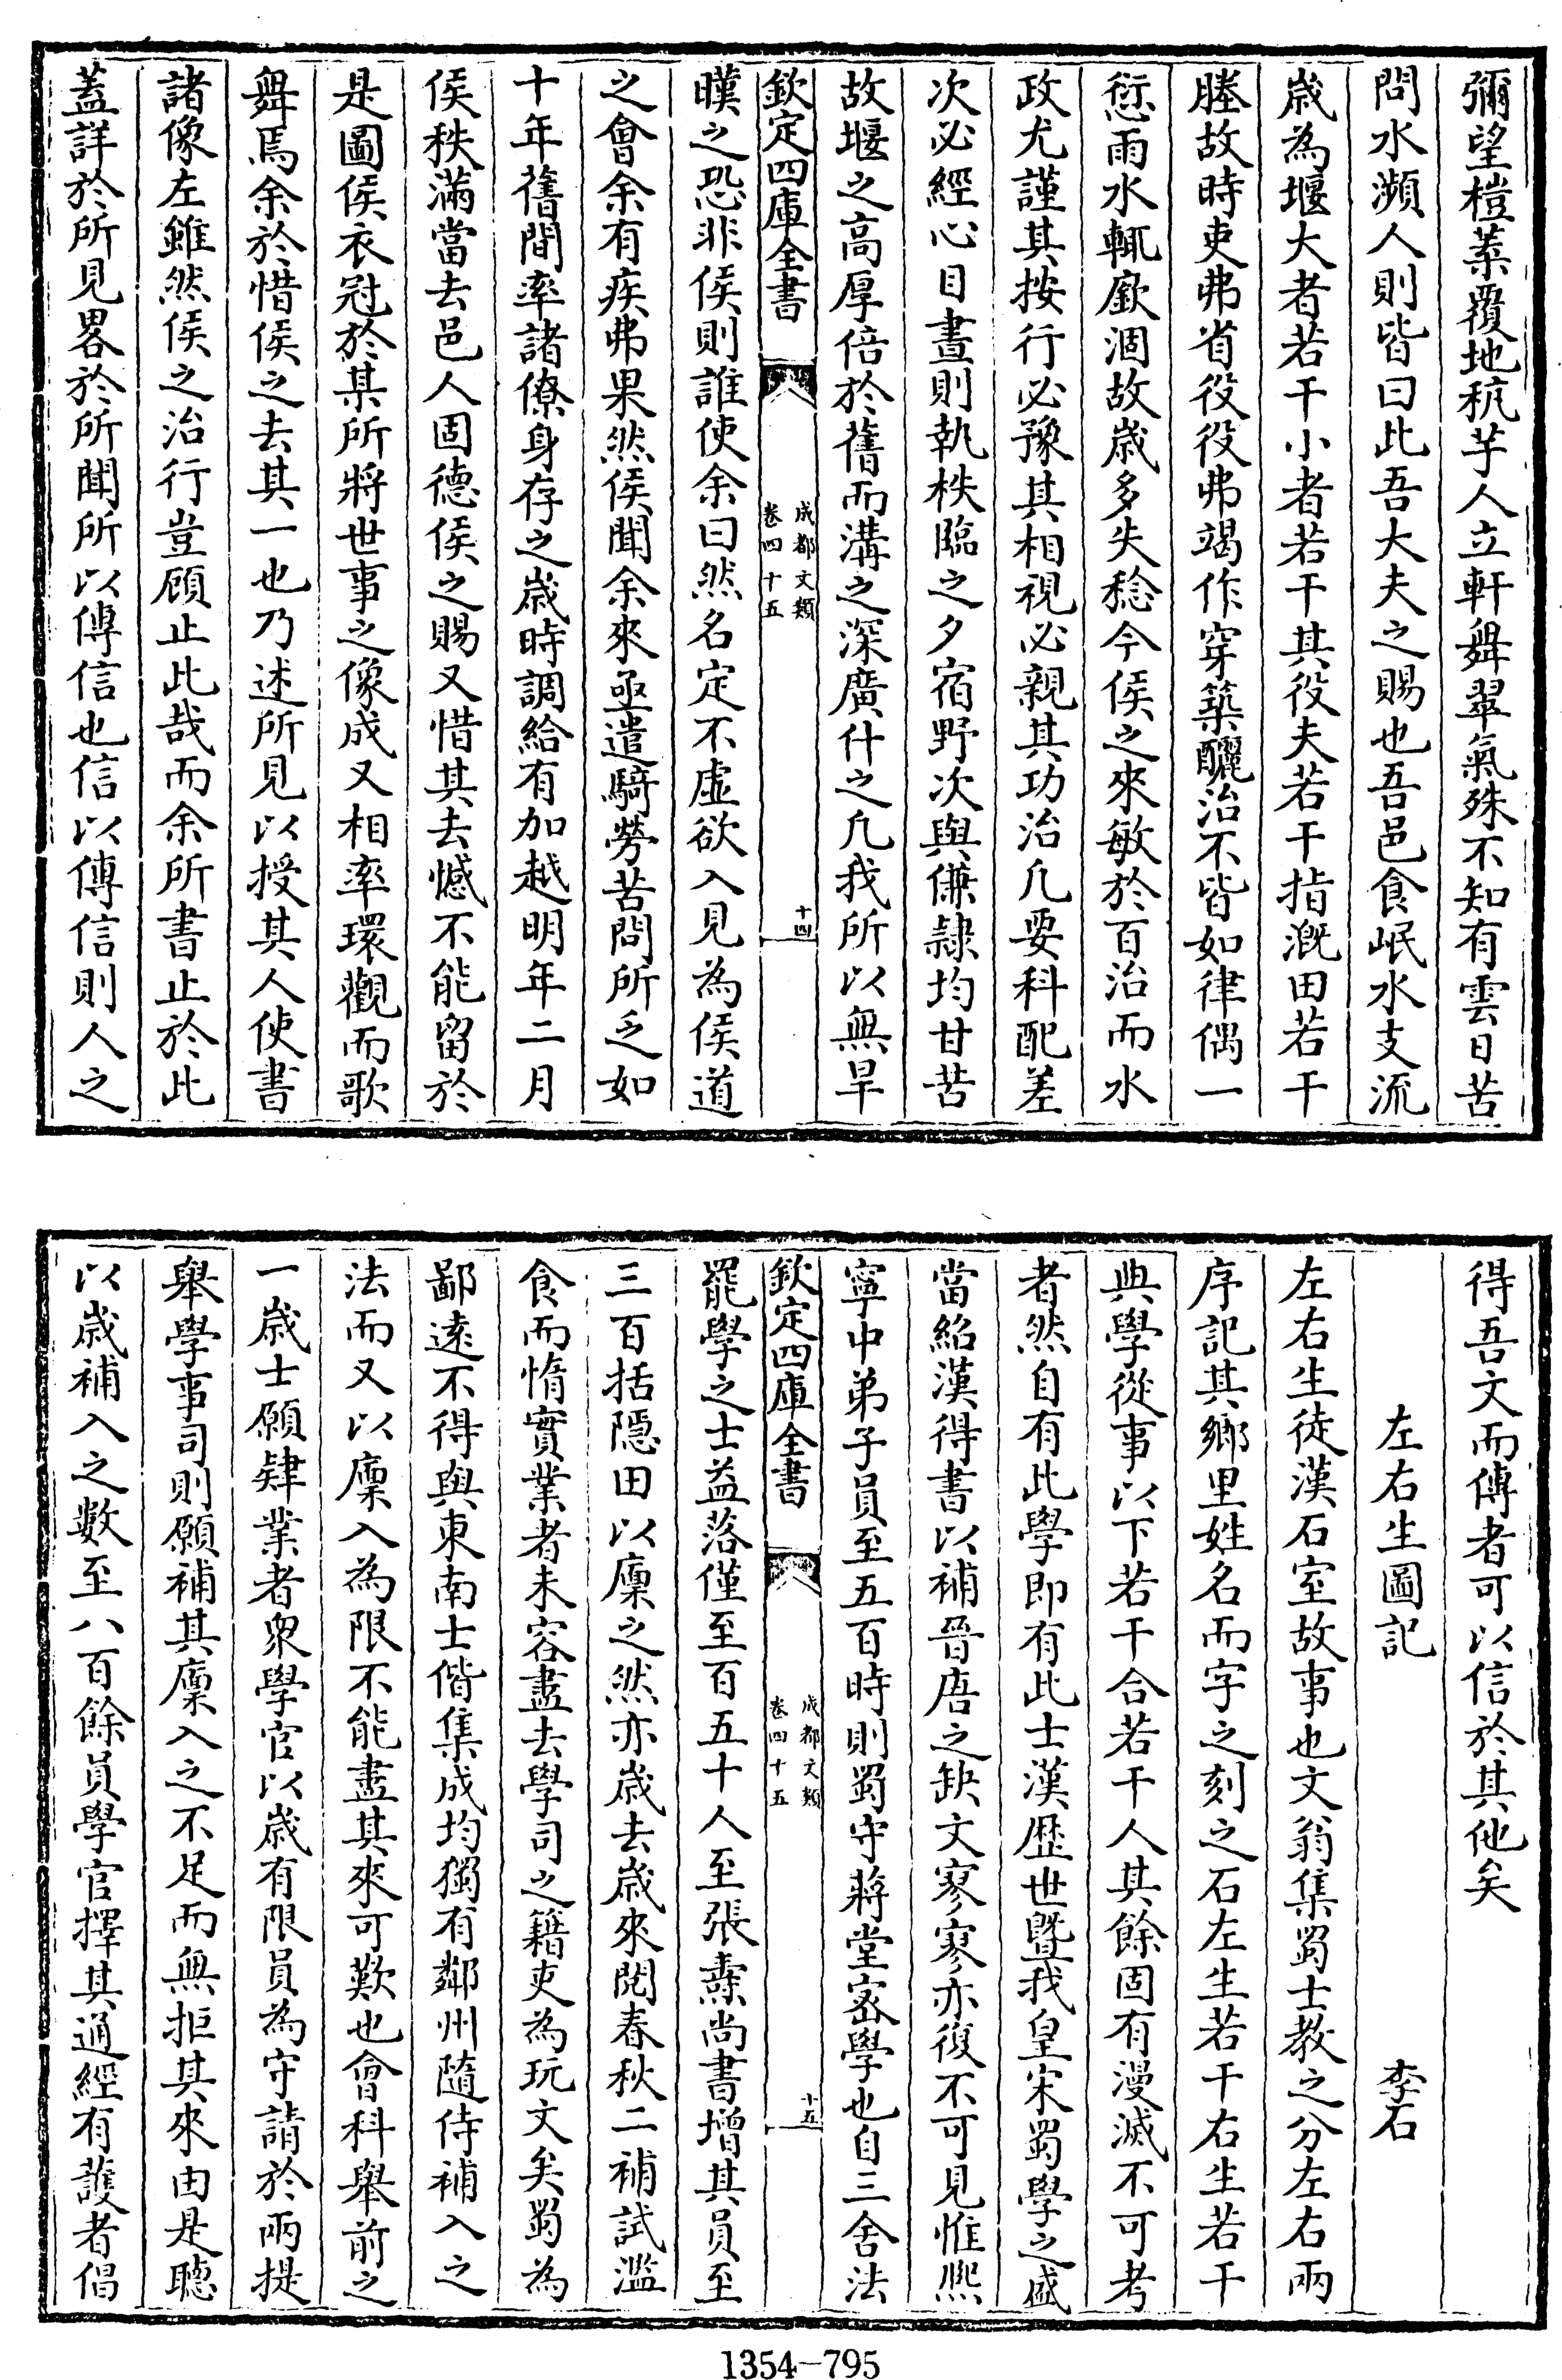 彌望榿蕠覆地秔芋人立軒舞翠氣殊不知有雲日苦
問水瀕人則皆曰此吾大夫之賜也吾邑食岷水支流
歳為堰大者若干小者若干其役夫若干指溉田若干
塍故時吏弗省役役弗竭作穿築釃治不皆如律偶一
愆雨水輒廞涸故歳多失稔今侯之來敏於百治而水
政尤謹其按行必豫其相視必親其功治凡要科配差
次必經心目晝則執秩臨之夕宿野次與傔隷均甘苦
故堰之高厚倍於舊而溝之深廣什之凡我所以無旱
欽定四庫全書
成都文類
卷四十五
十四
暵之恐非侯則誰使余曰然名定不虛欲入見為侯道
之會余有疾弗果然侯聞余來亟遣騎勞苦問所乏如
十年舊間率諸僚身存之歳時調給有加越明年二月
侯秩滿當去邑人固德侯之賜又惜其去憾不能留於
是圖侯衣冠於某所將世事之像成又相率環觀而歌
舞焉余於惜侯之去其一也乃述所見以授其人使書
諸像左雖然侯之治行豈顧止此哉而余所書止於此
蓋詳於所見畧於所聞所以傳信也信以傳信則人之
得吾文而傳者可以信於其他矣
左右生圖記
李石
左右生徒漢石室故事也文翁集蜀士教之分左右兩
序記其鄉里姓名而字之刻之石左生若干右生若干
典學從事以下若干合若干人其餘固有漫滅不可考
者然自有此學即有此士漢歴世暨我皇宋蜀學之盛
當紹漢得書以補晉唐之缺文寥寥亦復不可見惟熙
寧中弟子員至五百時則蜀守蔣堂密學也自三舍法
欽定四庫全書
成都文類
卷四十五
十五
罷學之士益落僅至百五十人至張燾尚書增其員至
三百括隱田以廩之然亦歳去歳來閱春秋二補試濫
食而惰實業者未容盡去學司之籍吏為玩文矣蜀為
鄙逺不得與東南士偕集成均獨有鄰州隨侍補入之
法而又以廩入為限不能盡其來可歎也會科舉前之
一歳士願肄業者衆學官以歳有限員為守請於兩提
舉學事司則願補其廩入之不足而無拒其來由是聽
以歳補入之數至八百餘員學官擇其通經有䕶者倡